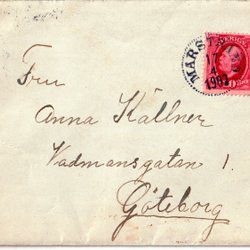 MARST
17
4
1902
SVERIGE
10
ÖRE
Fru
Anna Källner
Wadmansgatan 1
Göteborg